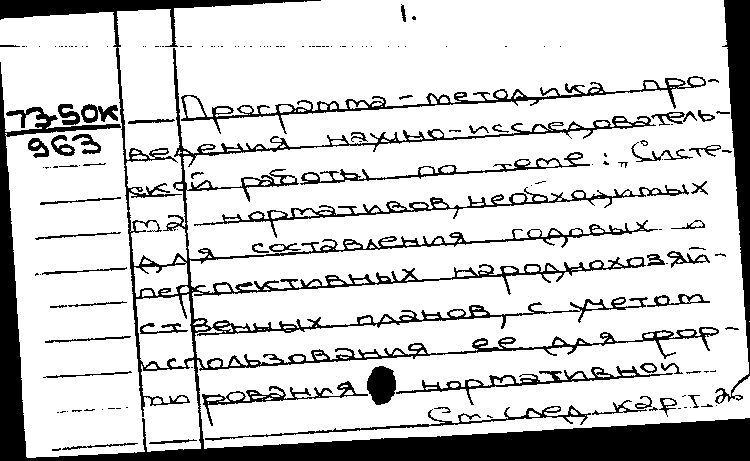 1.
73-50К
963
Программа-методика про-
ведения научно-исследователь-
ской работы по теме: „Систе-
ма нормативов, необходимых
для составления годовых и
перспективных народнохозяй-
ственных планов, с учетом
использования ее для фор-
мирования нормативной
См. след. карт.